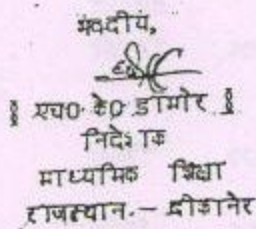 भवदीय,
[ एच० के० डामोर ]
निदेशक
माध्यमिक शिक्षा
राजस्थान.- बीकानेर